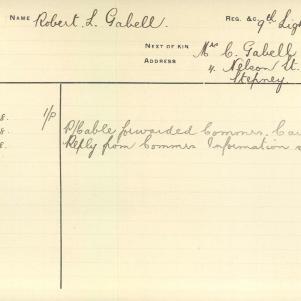 NAME Robert L. Gabell. REG. &C 9th Lig
NEXT OF KIN Mrs C. Gabell
ADDRESS 4. Nelson St.
Stepney
8. 1/P P/Cable forwarded Commrs. Cai
8. Reply from Commrs Information s